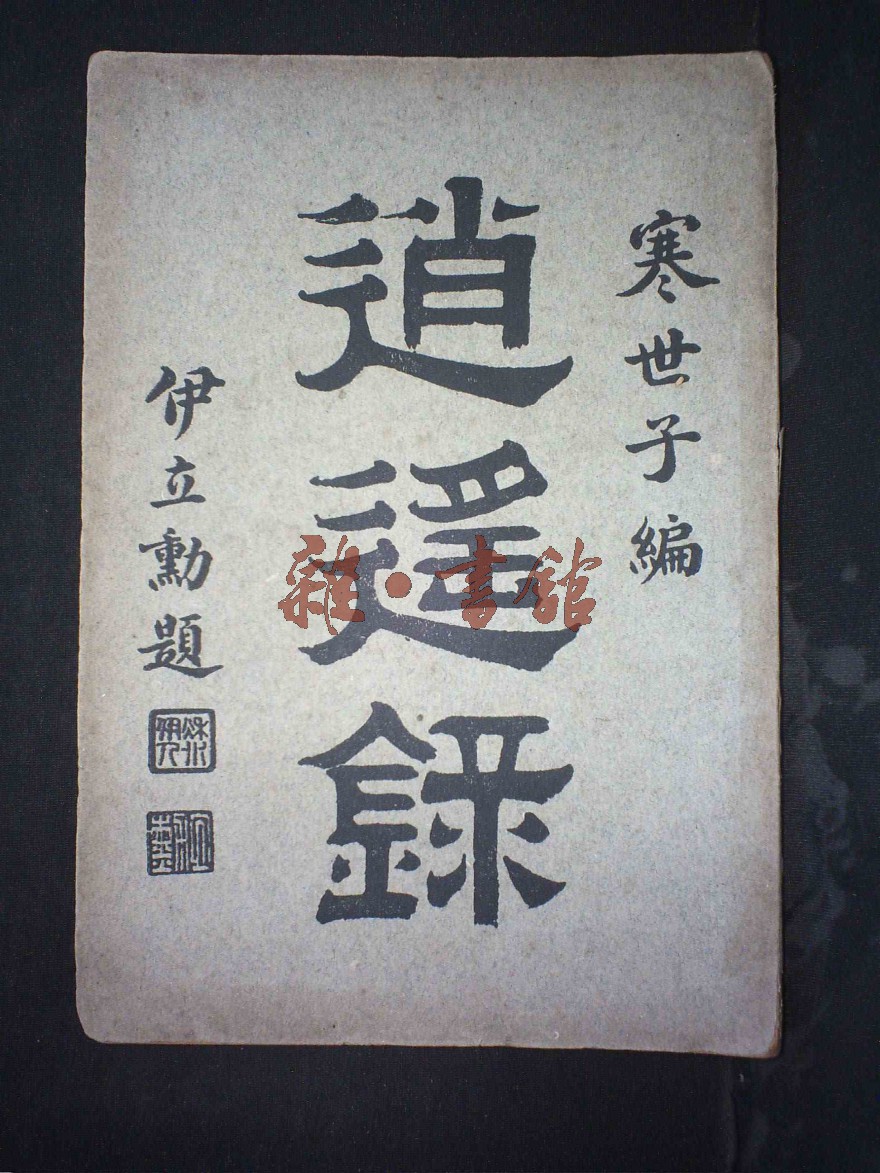 寒世子編
逍遥錄
伊立勳題
雜·書館